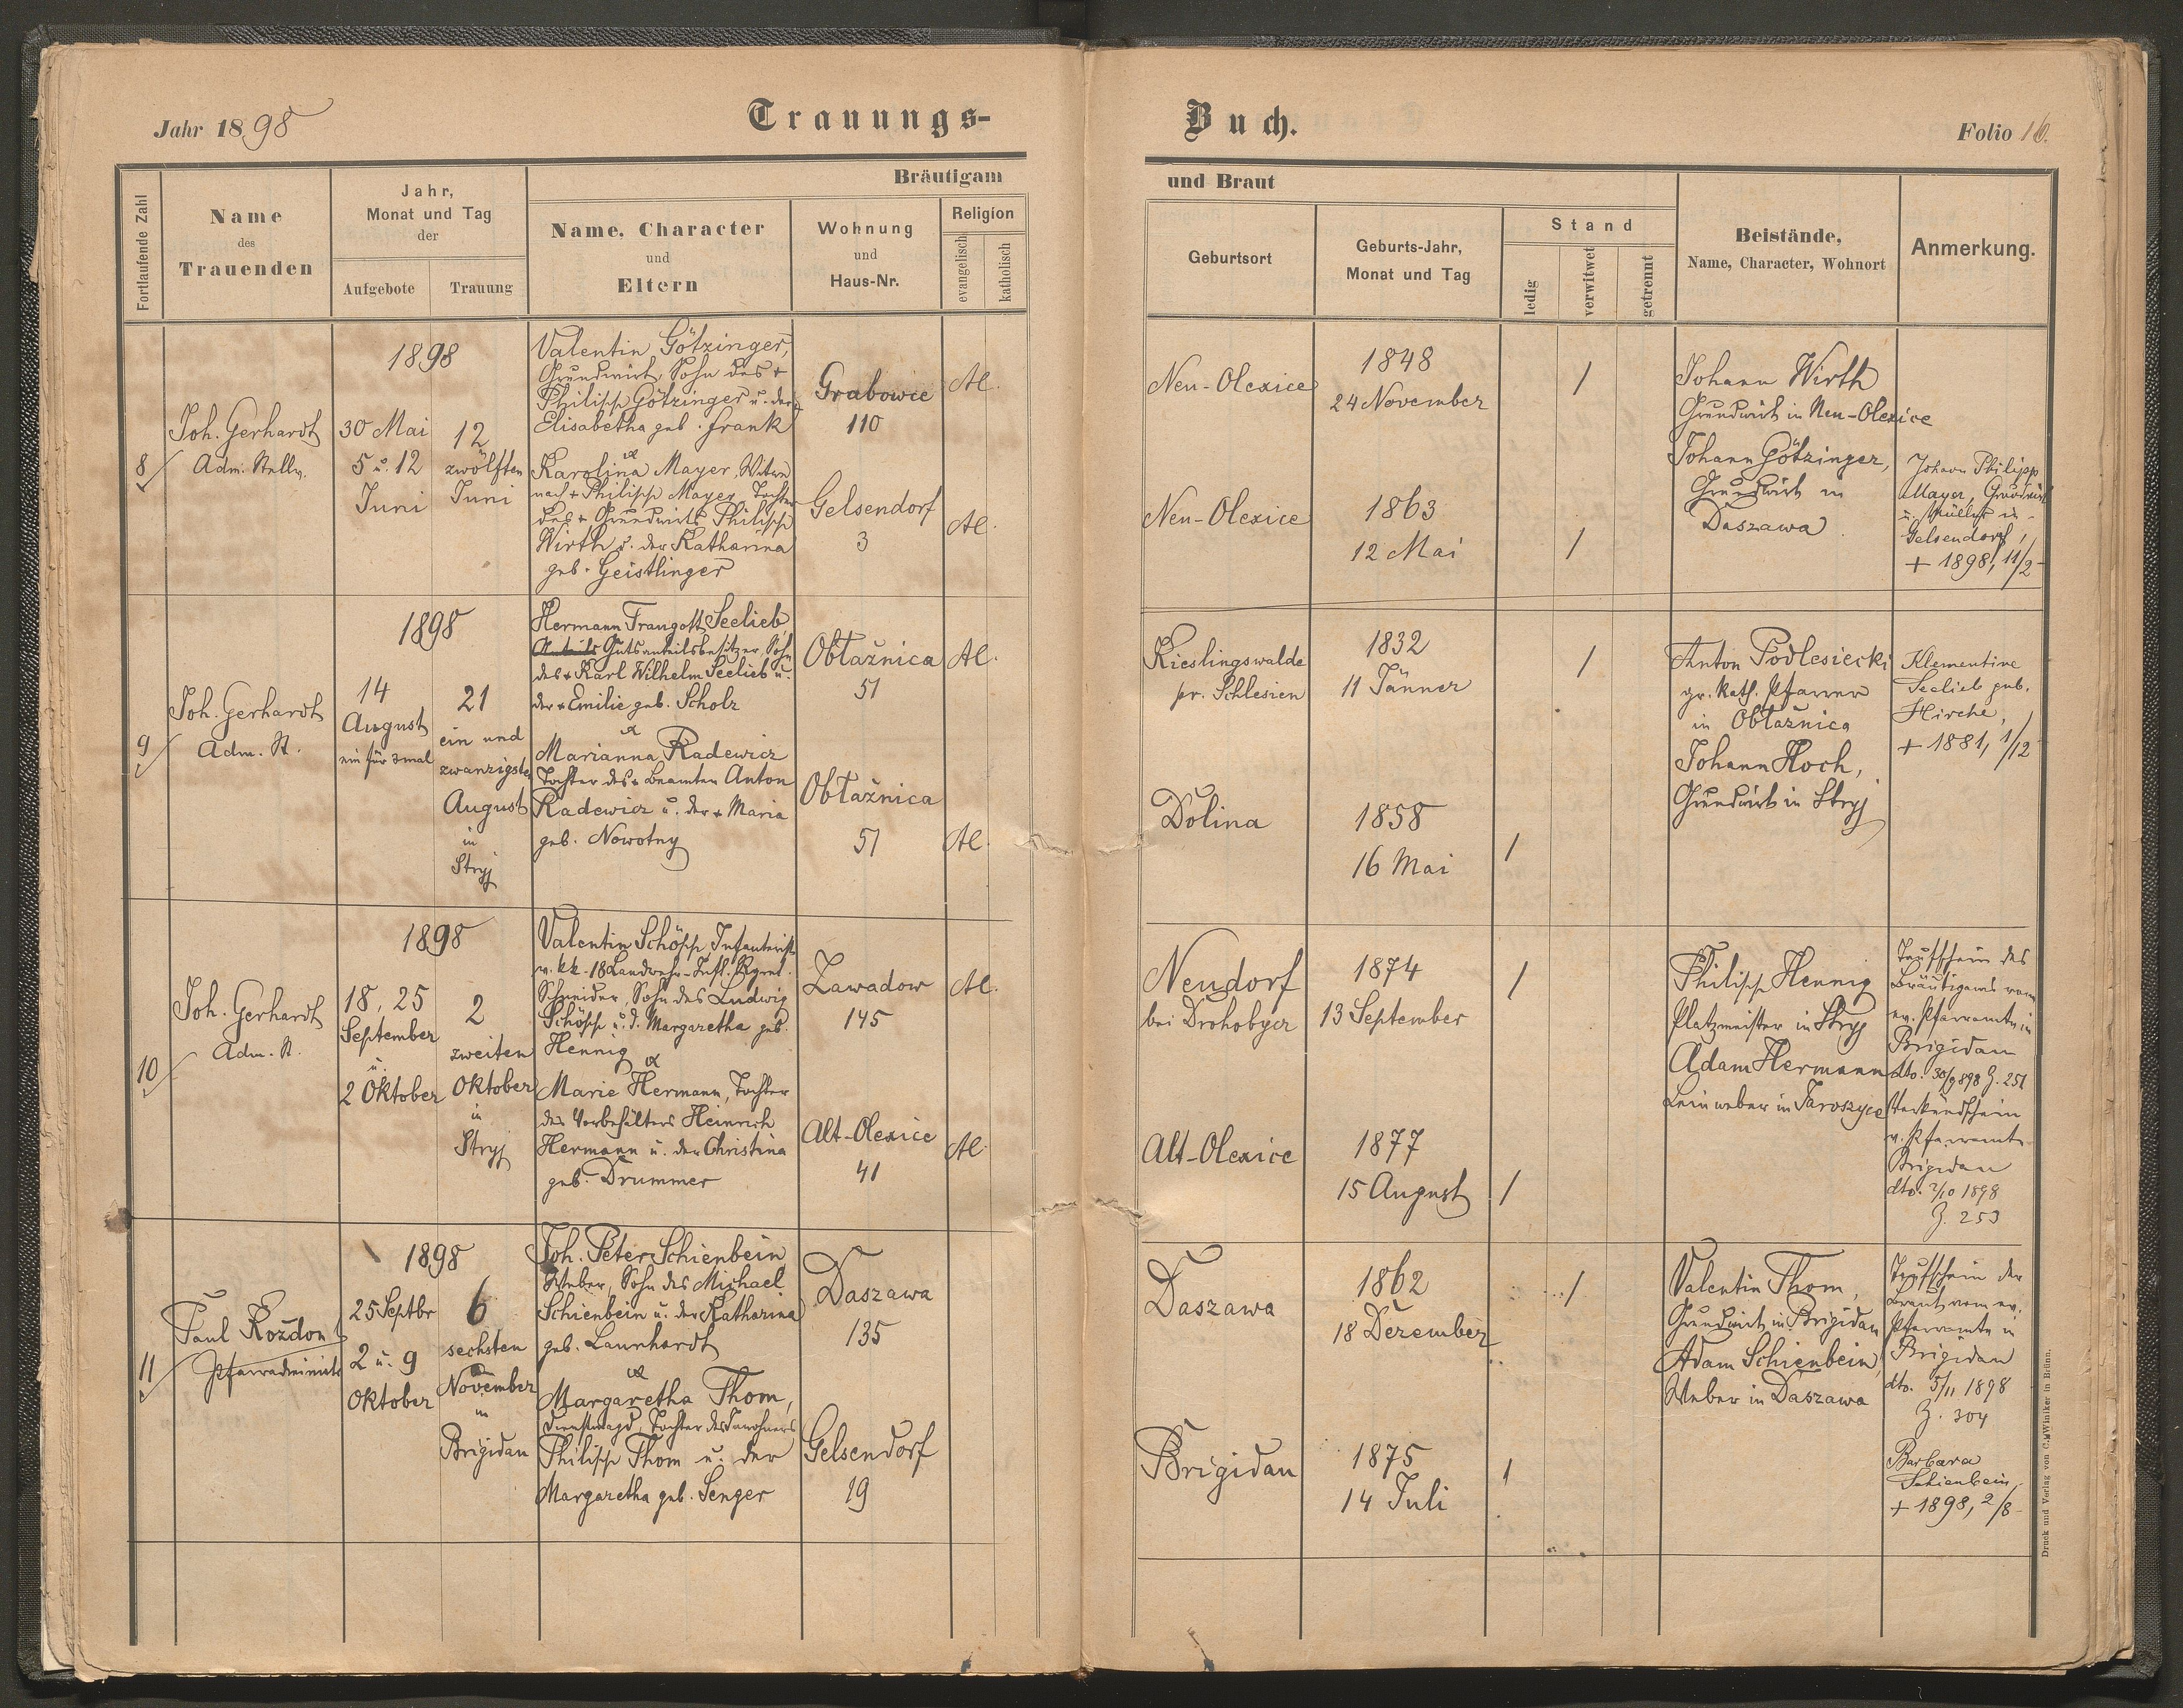 Jahr 1898
Trauungs-
Buch.
Folio 16.
Fortlaufende Zahl
Name
des
Trauenden
Jahr,
Monat und Tag
der
Aufgebote
Trauung
Bräutigam
und Braut
Name, Character
und
Eltern
Wohnung
und
Haus-Nr.
Religion
evangelisch
katholisch
Geburtsort
Geburts-Jahr,
Monat und Tag
Stand
ledig
verwitwet
getrennt
Beistände,
Name, Character, Wohnort
Anmerkung.
8
Joh. Gerhardt
Adm. Stellv.
1898
30 Mai
5 u. 12
Juni
12
zwölften
Juni
Valentin Götzinger,
Grundwirt, Sohn des +
Philipp Götzinger u. der
Elisabetha geb. Frank
u
Karolina Mayer, Witwe
nach + Philipp Mayer, Tochter
des + Grundwirts Philipp
Wirth u. der Katharina
geb. Geistlinger
Grabowce
110
Gelsendorf
3
AC.
AC.
Neu-Olexice
1848
24 November
/
Neu-Olexice
1863
12 Mai
/
Johann Wirth
Grundwirt in Neu-Olexice
Johann Götzinger,
Grundwirt in
Daszawa
Johann Philipp
Mayer, Grundwirt
u. Müller in
Gelsendorf,
+ 1898, 11/2
9
Joh. Gerhardt
Adm. St.
1898
14
August
ein für 3mal
21
ein und
zwanzigsten
August
in
Stryj
Hermann Traugott Seelieb
Gutsanteilsbesitzer, Sohn
des + Karl Wilhelm Seelieb u.
der + Emilie geb. Scholz
u
Marianna Radewicz
Tochter des + Beamten Anton
Radewicz u. der + Maria
geb. Nowotny
Obłaźnica
51
Obłaźnica
51
AC.
AC.
Kieslingswalde
pr. Schlesien
1832
11 Jänner
/
Dolina
1858
16 Mai
/
Anton Podlesiecki
gr. kath. Pfarrer
in Obłaźnica
Johann Koch,
Grundwirt in Stryj
Klementine
Seelieb geb.
Hirche,
+ 1881, 1/12
10
Joh. Gerhardt
Adm. St.
1898
18, 25
September
u.
2 Oktober
2
zweiten
Oktober
in
Stryj
Valentin Schöpp Infanterist
v. kk. 18 Landwehr-Inft. Rgmt.
Schneider, Sohn des Ludwig
Schöpp u. d. Margaretha geb.
Hennig
u
Marie Hermann, Tochter
des Vorbehälters Heinrich
Hermann u. der Christina
geb. Drummer
Zawadow
145
Alt-Olexice
41
AC.
AC.
Neudorf
bei Drohobycz
1874
13 September
/
Alt-Olexice
1877
15 August
/
Philipp Hennig
Platzmeister in Stryj
Adam Hermann
Leinweber in Jaroszyce
Taufschein des
Bräutigams vom
ev. Pfarramte in
Brigidau
dto. 30/9 898 Z. 251
Verkündschein
v. Pfarramte
Brigidau
dto. 2/10 1898
Z. 253
11
Paul Kozdon
Pfarradministr.
1898
25 Septbr
2 u. 9
Oktober
6
sechsten
November
in
Brigidau
Joh. Peter Schienbein
Weber, Sohn des Michael
Schienbein u. der Katharina
geb. Launhardt
u
Margaretha Thom,
Dienstmagd, Tochter des Inwohners
Philipp Thom u. der
Margaretha geb. Senger
Daszawa
135
Gelsendorf
19
Daszawa
1862
18 Dezember
/
Brigidau
1875
14 Juli
/
Valentin Thom,
Grundwirt in Brigidau
Adam Schienbein,
Weber in Daszawa
Taufschein der
Braut vom ev.
Pfarramte in
Brigidau
dto. 5/11 1898
Z. 304
Barbara
Schienbein,
+ 1898, 2/8
Druck und Verlag von C. Winiker in Brünn.